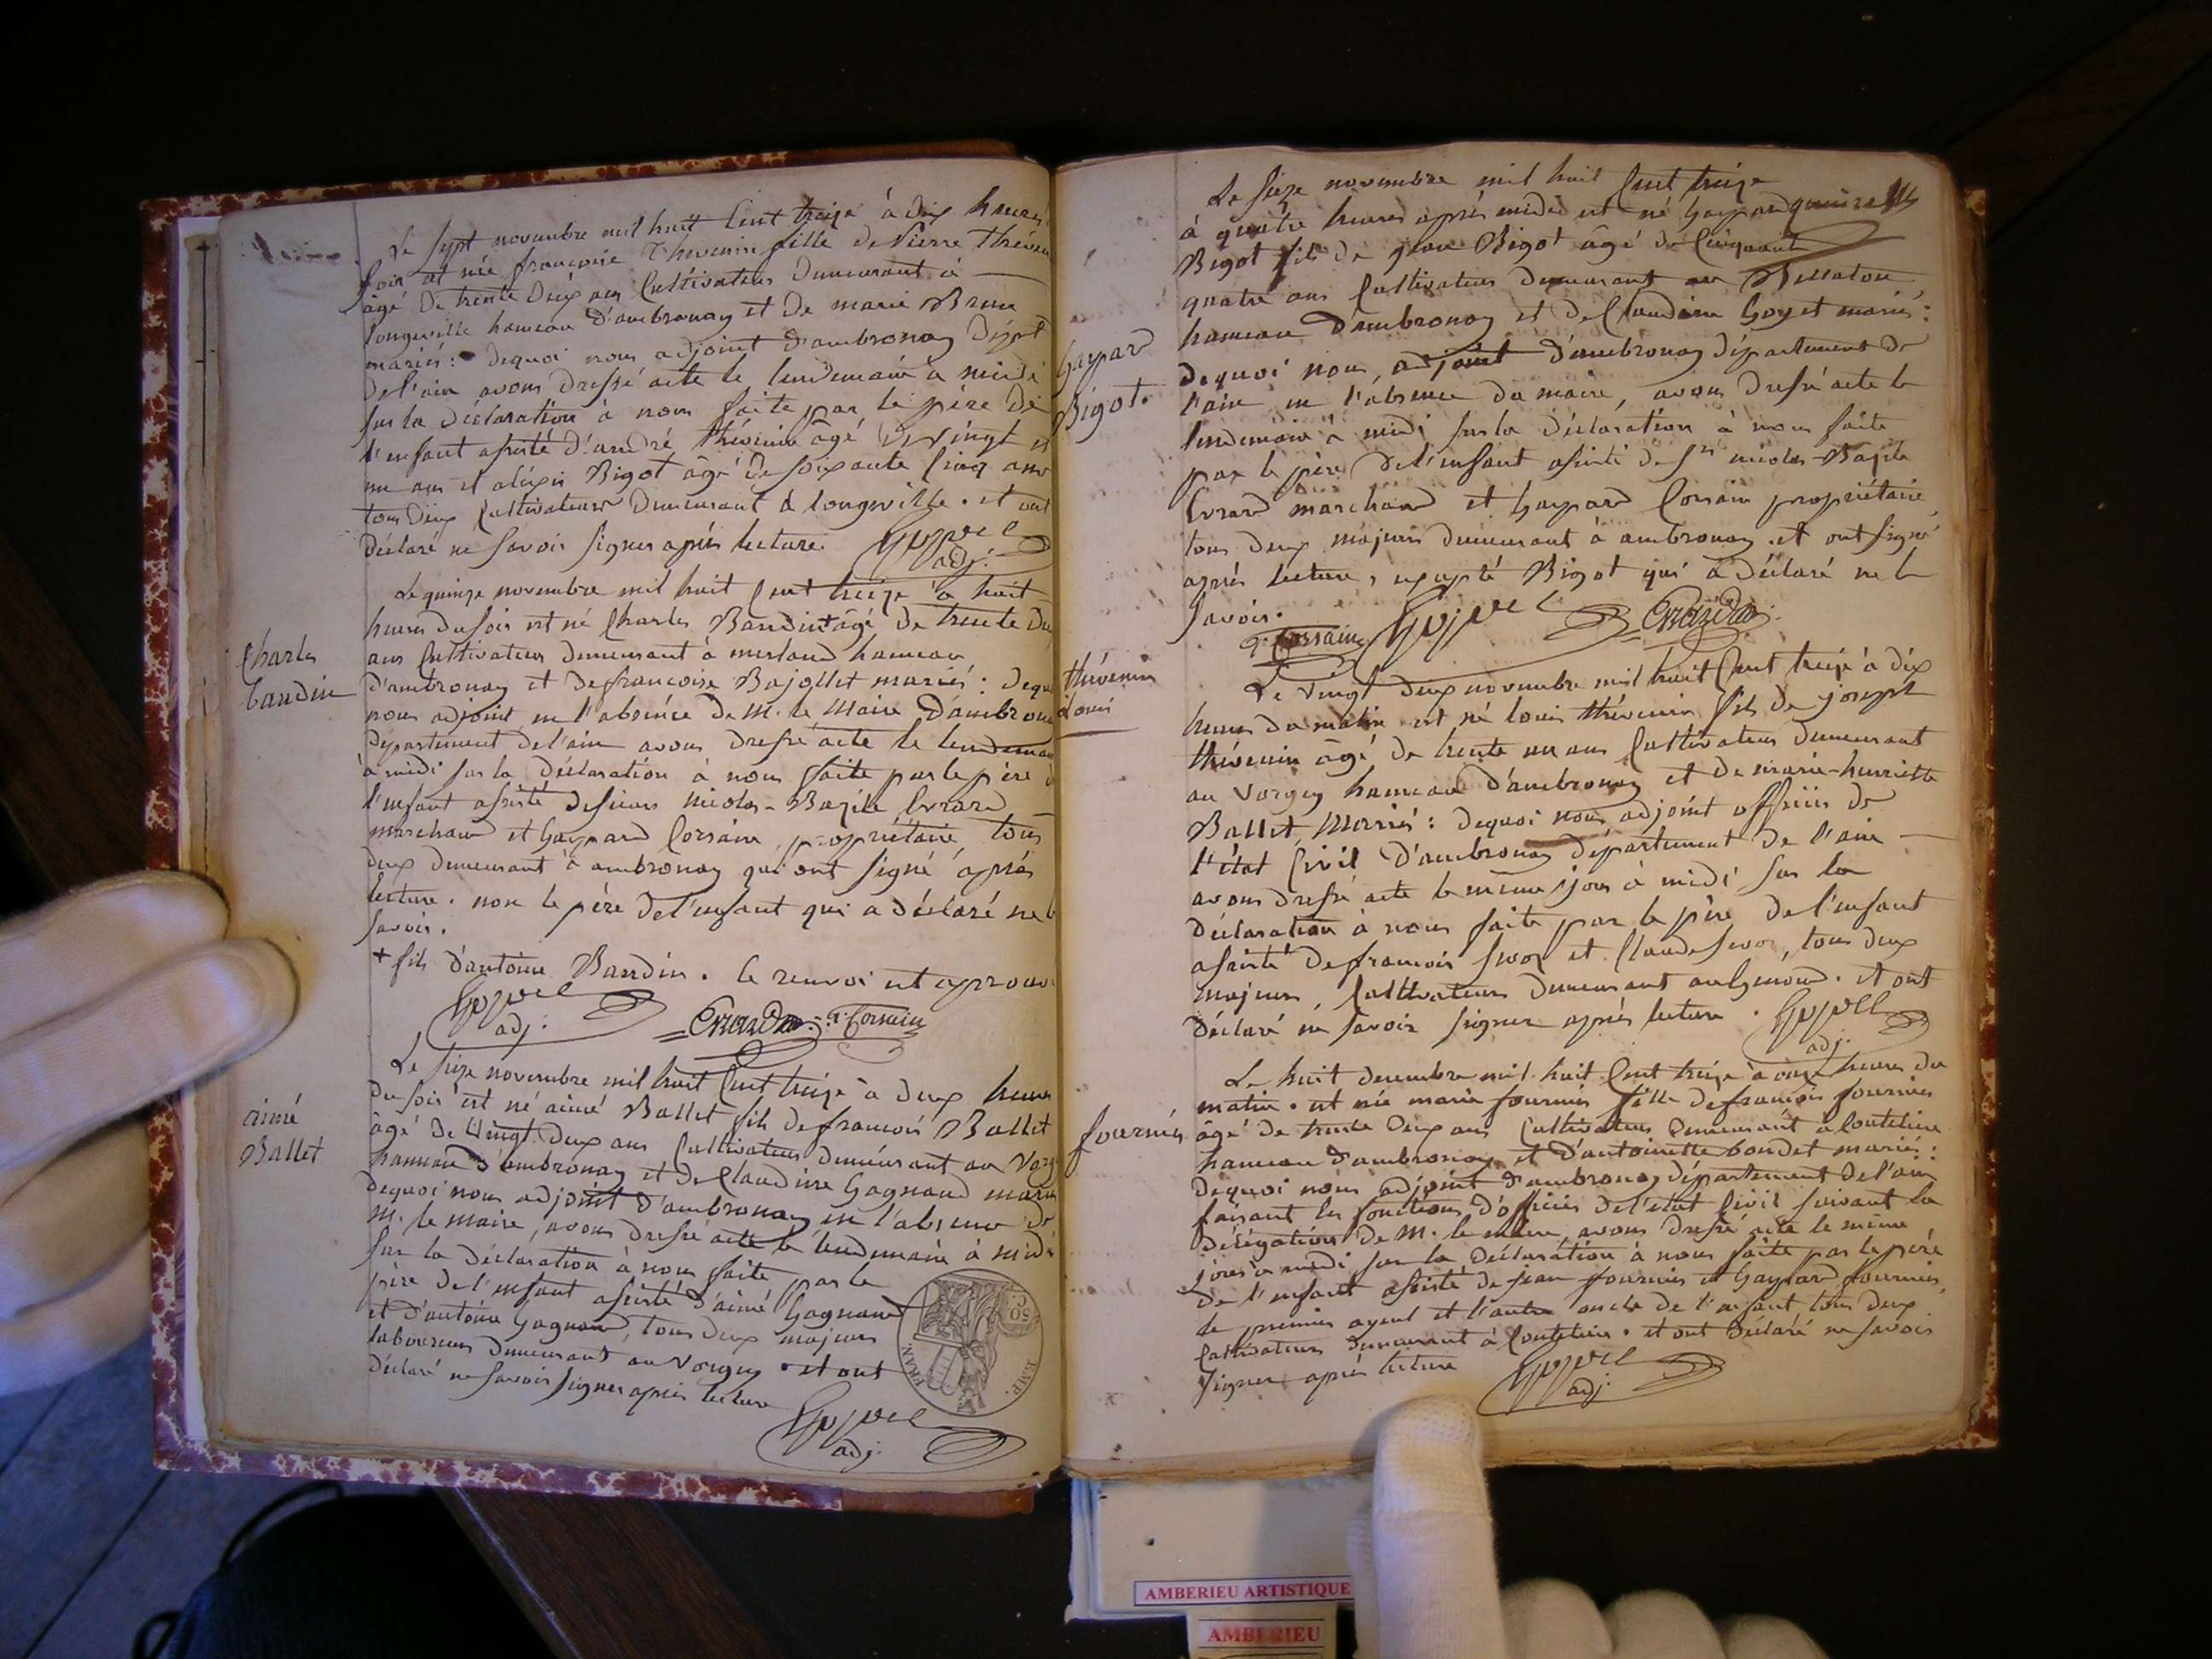 Le sept novembre mil huit cent treize à dix heures
soir est née françoise Thevenin fille de Pierre Théven
âgé de trente deux ans cultivateur demeurant à
longeville hameau d'ambronay et de marie Brun
mariés: dequoi nous adjoint d'ambronay dépt
de l'ain avons dressé acte le lendemain a midi
sur la déclaration à nous faite par le père de
l'enfant assisté d'andré thévenin âgé de vingt et
un ans et alexis Bigot âgé de soixante cinq ans
tous deux cultivateurs demeurant à longeville. et ont
déclaré ne savoir signer après lecture.
adj.
Charles
baudin
Le quinze novembre mil huit cent treize à huit
heures du soir est né Charles Baudin + âgé de trente du
ans cultivateur demeurant à merland hameau
d'ambronay et de francoise Bajollet mariés: dequ
nous adjoint en l'absence de M. le Maire d'ambrona
département de l'ain avons dressé acte le lendemai
à midi sur la déclaration à nous faite par le père d
l'enfant assisté de sieurs nicolas-Bazile Evrard
marchand et Gaspard Corsain, propriétaire, tous
deux demeurant à ambronay qui ont signé après
lecture. non le père de l'enfant qui a déclaré ne l
savoir.
+ fils d'antoine Baudin. le renvoi est aprouv
adj. Evrard G. Corsain
aimé
Ballet
Le seize novembre mil huit cent treize à deux heures
du soir est né aimé Ballet fils de francois Ballet
âgé de vingt deux ans cultivateur demeurant au Vorg
hameau d'ambronay et de Claudine Gagnaud marié
dequoi nous adjoint d'ambronay en l'absence de
M. le maire, avons dressé acte le lendemain à midi
sur la déclaration à nous faite par le
père de l'enfant assisté d'aimé Gagnaud
et d'antoine Gagnaud, tous deux majeurs
laboureurs demeurant au Vorgey. et ont
déclaré ne savoir signer après lecture
FRAN. EMP. 50 C.
adj.
Gaspard
Bigot.
Le seize novembre mil huit cent treize
à quatre heures après midi est né Gaspard
Bigot fils de jean Bigot âgé de cinquante
quatre ans cultivateur demeurant au Bellaton
hameau d'ambronay et de Claudine Goyet mariés:
dequoi nous, adjoint d'ambronay département de
l'ain en l'absence du maire, avons dressé acte le
lendemain à midi sur la déclaration à nous faite
par le père de l'enfant assisté de srs nicolas-Bazile
Evrard marchand et Gaspard Corsain propriétaire
tous deux majeurs demeurant à ambronay. et ont signé
après lecture, excepté Bigot qui a déclaré ne le
savoir.
G. Corsain Evrard
thévenin
Louis
Le vingt deux novembre mil huit cent treize à dix
heures du matin est né louis thévenin fils de joseph
thévenin âgé de trente un ans cultivateur demeurant
au Vorgey hameau d'ambronay et de marie-henriette
Ballet, Mariés: dequoi nous adjoint officier de
l'état Civil d'ambronay département de l'ain
avons dressé acte le même jour à midi sur la
déclaration à nous faite par le père de l'enfant
assisté de francois et Claude, tous deux
majeurs, cultivateurs demeurant. et ont
déclaré ne savoir signer après lecture.
adj.
fournier
Le huit decembre mil huit cent treize à onze heures du
matin. est née marie fournier fille de francois fournier
âgé de trente deux ans cultivateur demeurant à Coutelieu
hameau d'ambronay et d'antoinette bondet mariés:
dequoi nous adjoint d'ambronay département de l'ain
faisant les fonctions d'officier de l'état Civil suivant la
délégation de M. le maire, avons dressé acte le même
jour à midi sur la déclaration à nous faite par le père
de l'enfant assisté de jean fournier et Gaspard fournier,
le premier ayeul et l'autre oncle de l'enfant tous deux
cultivateurs demeurant à Coutelieu. et ont déclaré ne savoir
signer après lecture
adj.
AMBERIEU ARTISTIQUE
AMBERIEU